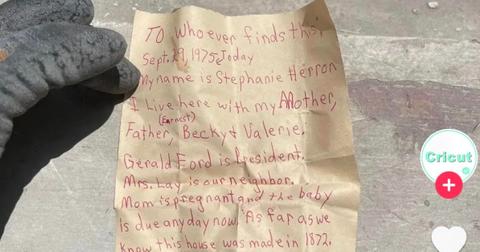 TO whoever finds this,
Sept. 29, 1975 Today
My name is Stephanie Herron
I Live here with my Mother,
(Earnest)
Father, Becky & Valerie.
Gerald Ford is President.
Mrs. Lay is our neighbor.
Mom is pregnant and the baby
Is due any day now. As far as we
know this house was made in 1872.
Cricut